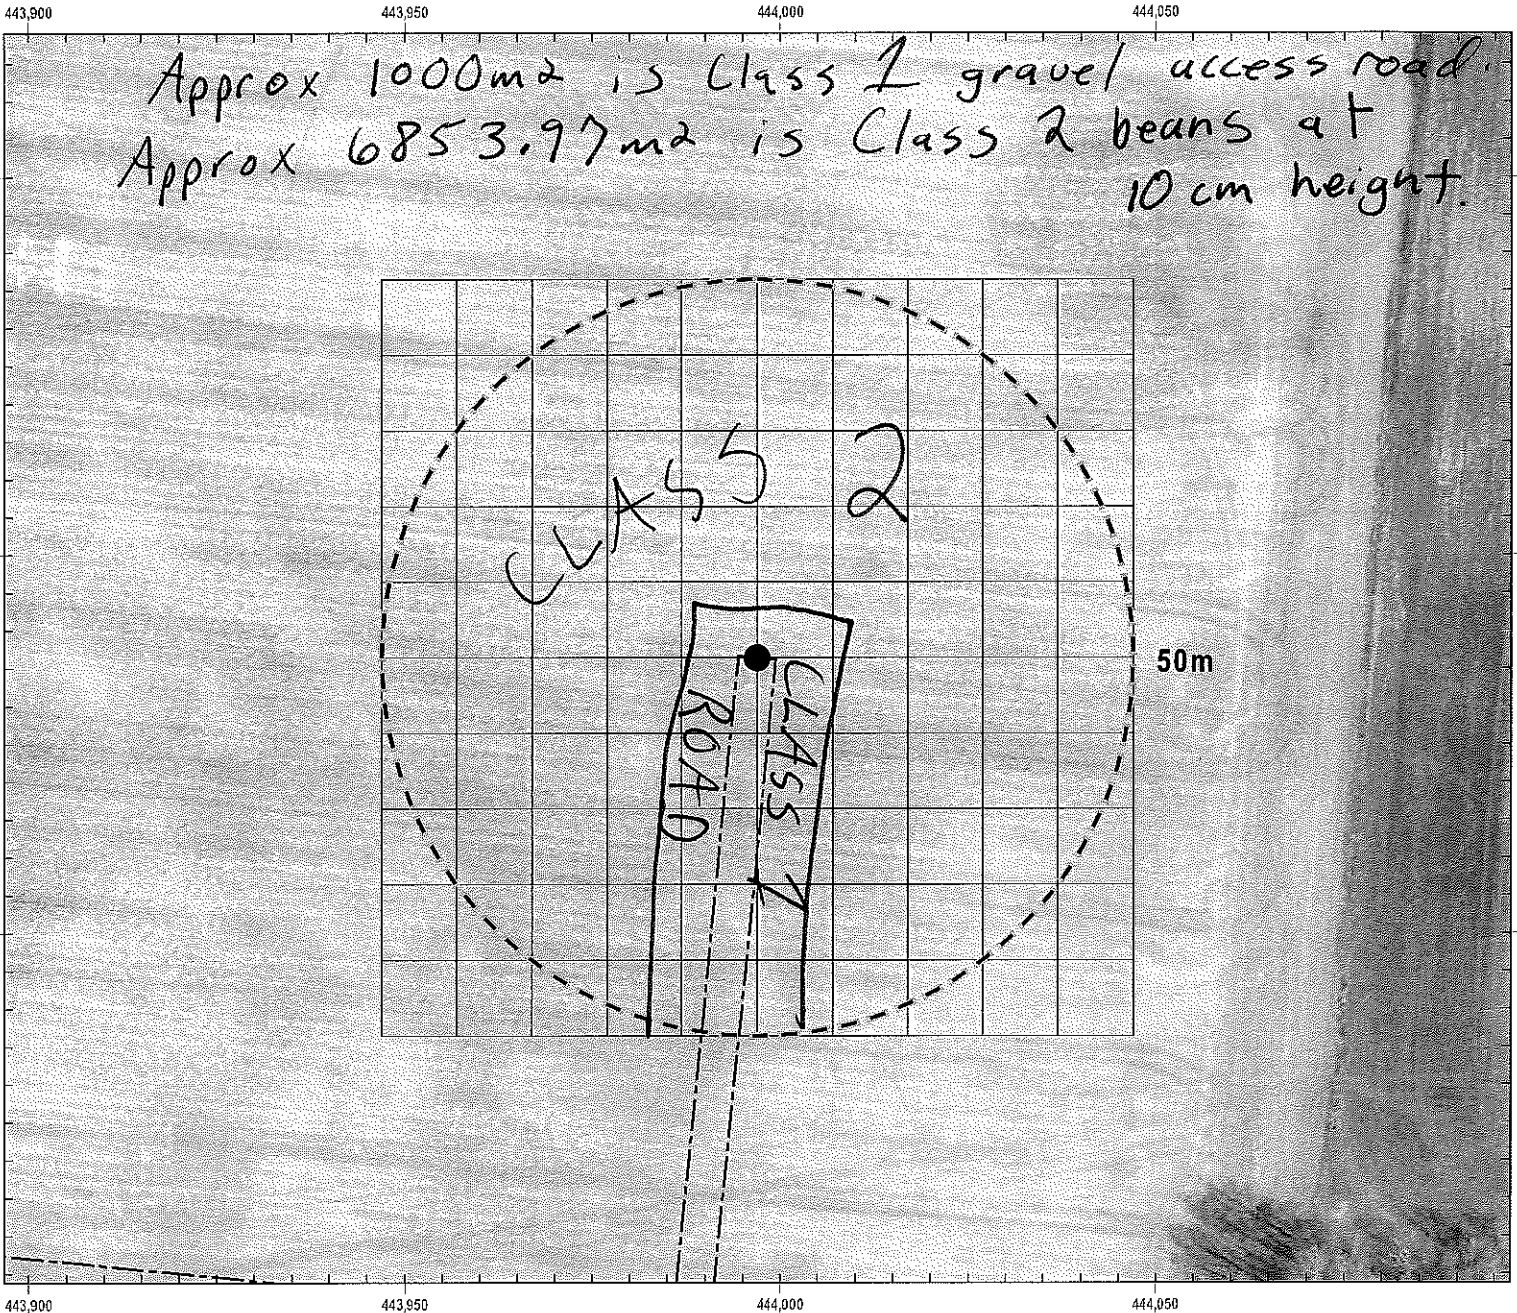 443,900 443,950 444,000 444,050
Approx 1000m2 is Class 1 gravel access road.
Approx 6853.97m2 is Class 2 beans at
10 cm height.
CLASS 2
50m
CLASS 1
ROAD
443,900 443,950 444,000 444,050